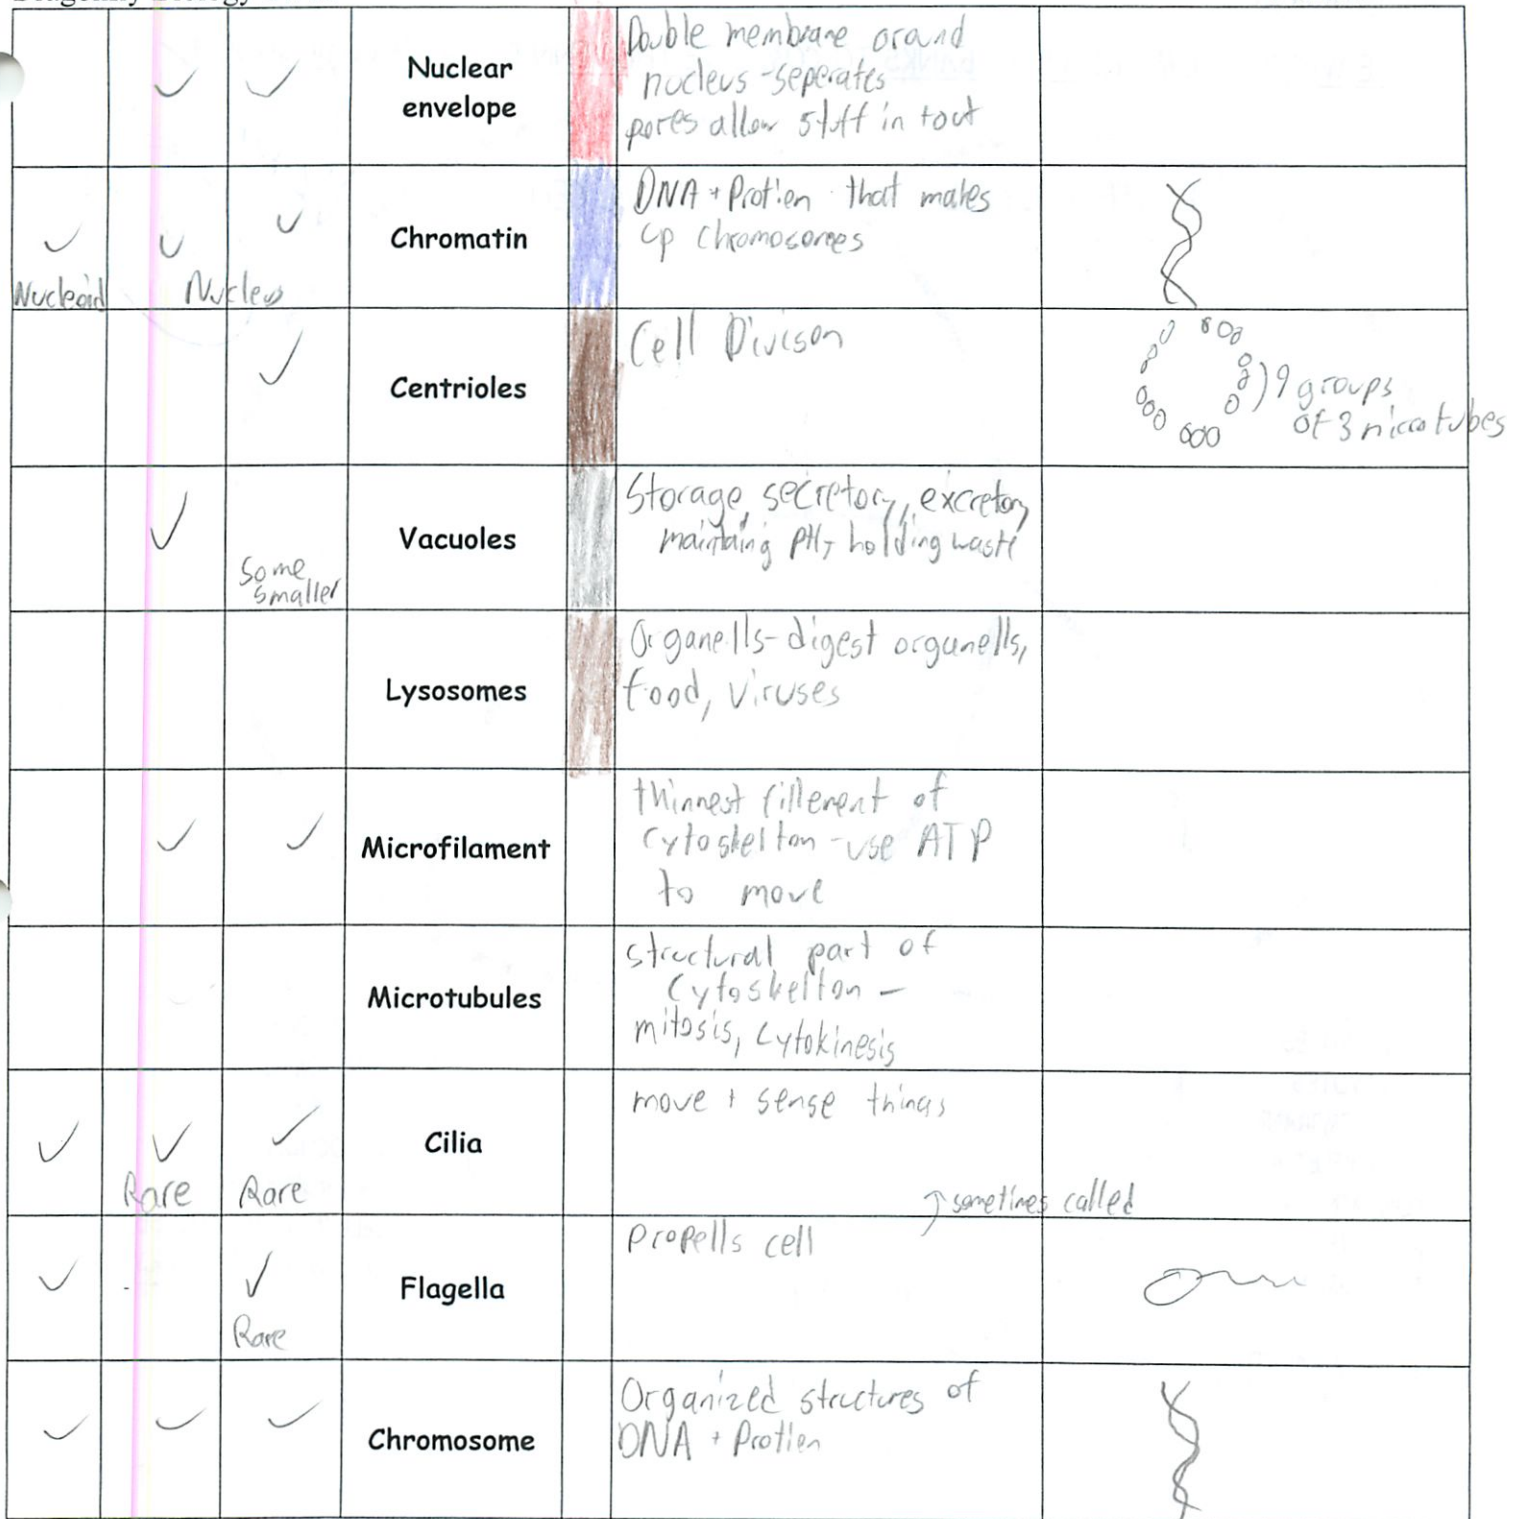 Nuclear
envelope
Double membrane around
nucleus - seperates
pores allow stuff in + out
Nucleoid
Nucleus
Chromatin
DNA + Protien that makes
up chromosomes
Centrioles
Cell Divison
9 groups
of 3 microtubes
Some
smaller
Vacuoles
Storage, secretory, excretory
maintaing PH, holding waste
Lysosomes
Organells - digest organells,
food, viruses
Microfilament
thinnest fillement of
cytoskelton - use ATP
to move
Microtubules
structural part of
Cytoskelton -
mitosis, cytokinesis
Rare
Rare
Cilia
move + sense things
sometimes called
Rare
Flagella
Propells cell
Chromosome
Organized structures of
DNA + Protien